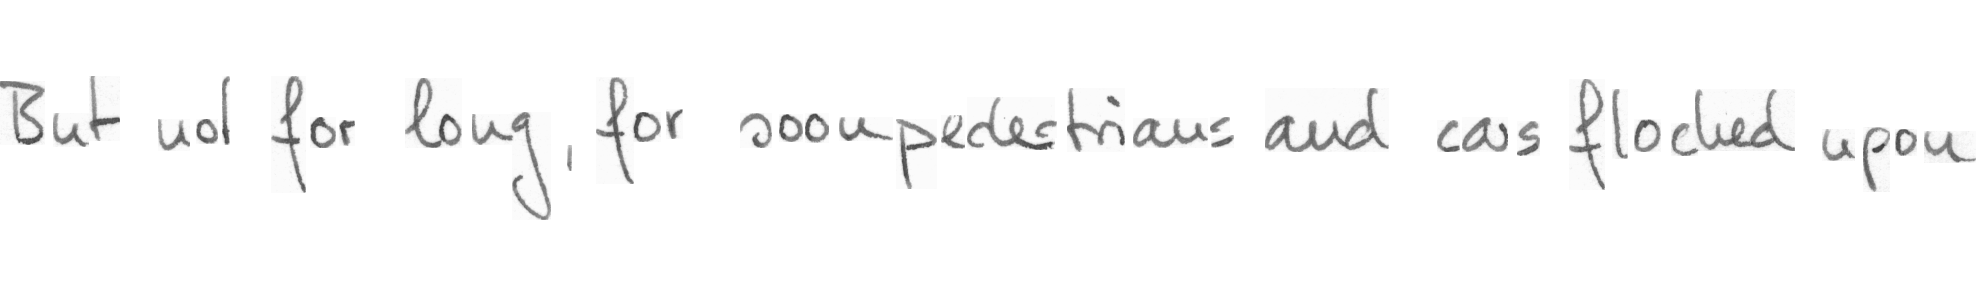 But not for long, for soon pedestrians and cars flocked upon